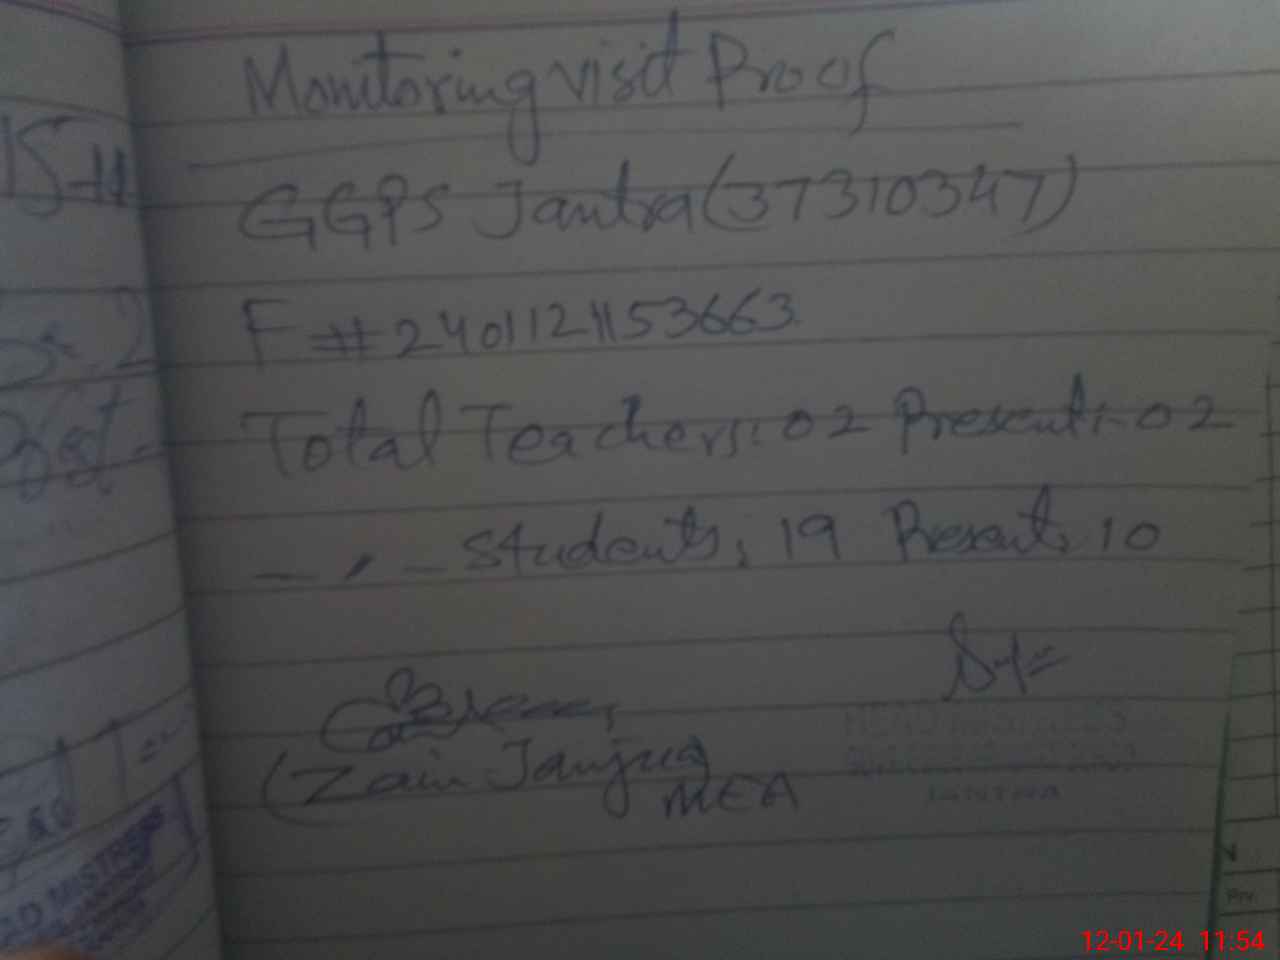 Monitoring visit Proof
GGPS Jantra (37310347)
F # 2401121153663
Total Teachers: 02 Present: 02
— " — Students: 19 Present: 10
(Zain Janjua)
MEA
HEAD MISTRESS
JANTRA
D MISTRESS
12-01-24 11:54